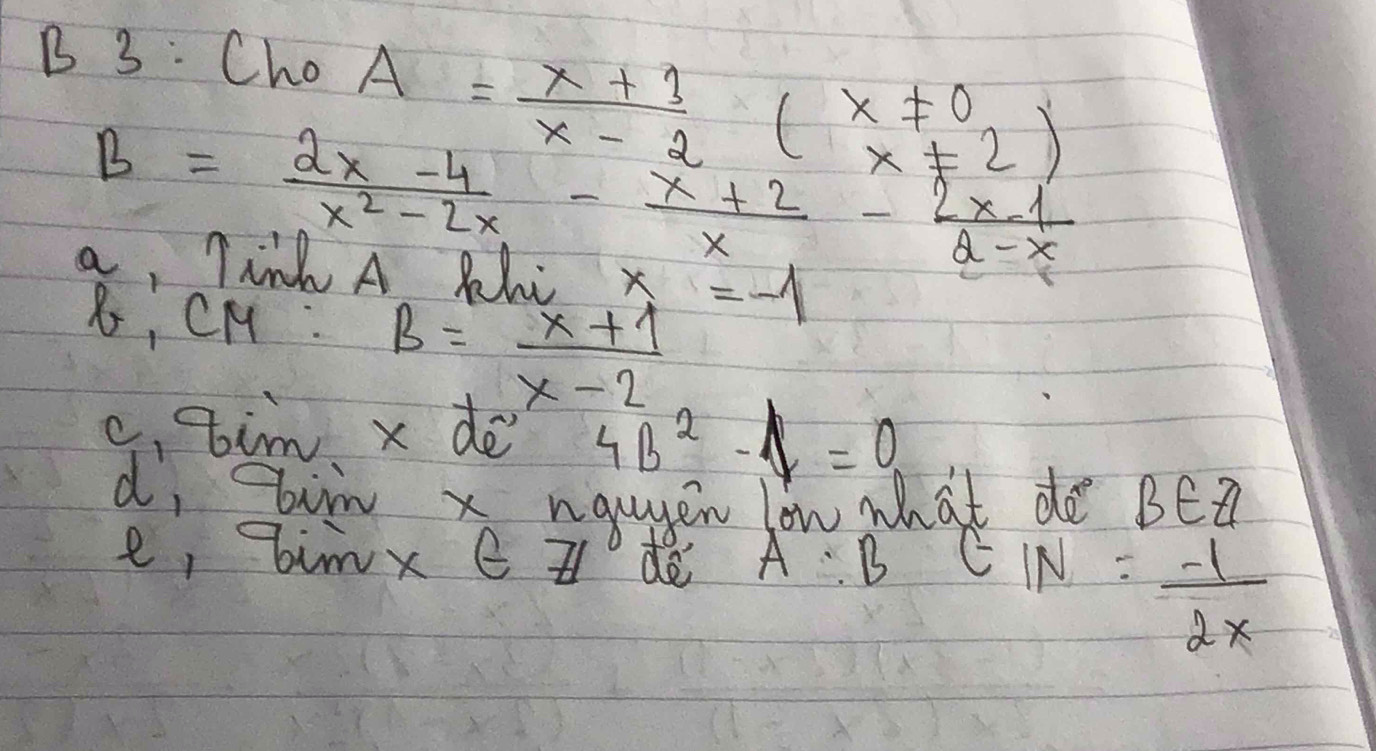 B 3 : Cho A = \frac{x + 3}{x - 2} ( x ≠ 0 x ≠ 2 )
B = \frac{2x - 4}{x^2 - 2x} - \frac{x + 2}{x} - \frac{2x - 1}{2 - x}
a, Tính A khi x = -1
b, CM : B = \frac{x + 1}{x - 2}
c, tìm x để 4B^2 - 1 = 0
d, Tìm x nguyên lớn nhất để B ∈ Z
e, Tìm x ∈ Z để A : B ∈ N = \frac{-1}{2x}